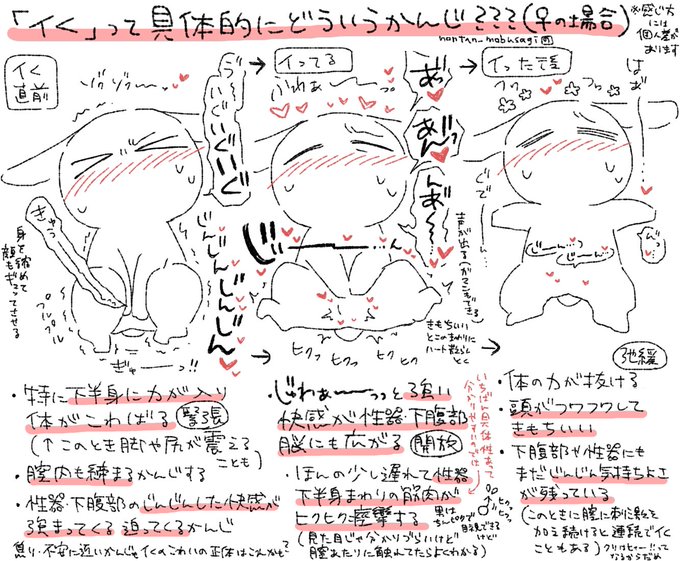 「イく」って具体的にどういうかんじ???(♀の場合)
※感じ方
には
個人差が
あります
nontan_mobusagi
イく
直前
ゾクゾクー…
う゛う
いぐ
いぐ
いぐ
きゅう
身を縮めて
顔もギュッてさせる
プル
プル
プル
じんじんじんじん
ぎゅーーっ!!
イってる
ふわぁーーっ
あっ
あんっ
んあ〜〜
じーーー…ん
声が出る(ガマンもできる)
きもちいい
とこのまわりに
ハート散らしとく
ヒクッ
ヒクッ
ヒクッ
イった後
フワ
フワ
はぁ
ぐでーーん…
じーん…っ
じーん…っ
弛緩
・特に下半身に力が入り
体がこわばる 緊張
(↑このとき脚や尻が震える
ことも)
・膣内も締まるかんじする
・性器・下腹部のじんじんした快感が
強まってくる 迫ってくるかんじ
焦り・不安に近いかんじもイくのこわいの正体はこれかも?
・じゅわぁーーっっと強い
快感が性器・下腹部
脳にも広がる 開放
・ほんの少し遅れて性器
下半身まわりの筋肉が
ヒクヒク痙攣する
(見た目じゃ分かりづらいけど
膣あたりに触れてたらよくわかる)
いちばん具体性あって
分かりやすいのでは
ヒクッ
ヒクッ
男は
ちんピクで
目視できる
けど
・体の力が抜ける
・頭がフワフワして
きもちいい
・下腹部や性器にも
まだじんじん気持ちよさ
が残っている
(このときに膣に刺激を
加え続けると連続でイく
こともある)
クリはヒャー!!って
なるからだめ